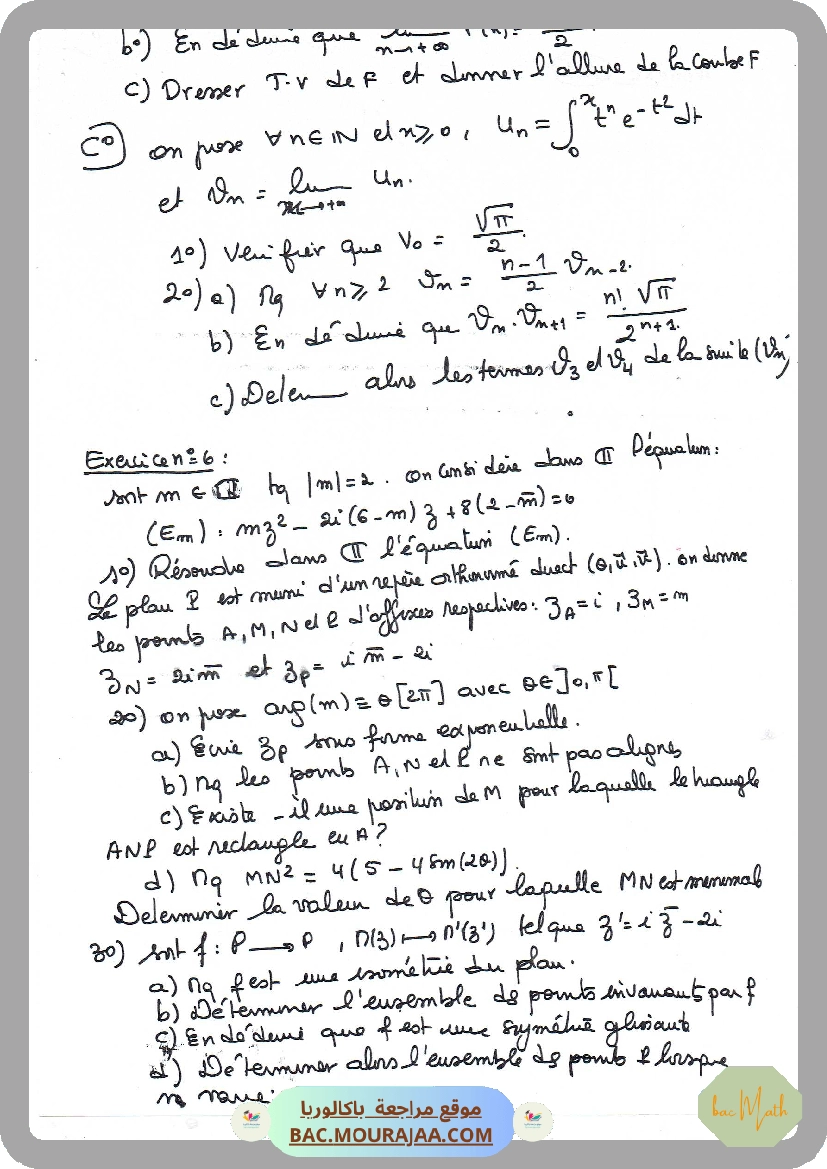 b°) En déduire que lim n→+∞ = 2
c) Dresser T.V de F et donner l'allure de la courbe F
C°) on pose ∀n∈IN et n⩾0, Un = ∫₀ˣ tⁿ e^(-t²) dt
et ϑn = lim x→+∞ Un.
1°) Vérifier que V₀ = √π/2.
2°) a) Mq ∀n⩾2 ϑn = (n-1)/2 ϑn-2.
b) En déduire que ϑn.ϑn+1 = n!√π/2ⁿ⁺¹.
c) Déterm alors les termes ϑ3 et ϑ4 de la suite (Vn)
Exercice n°=6 :
soit m ∈ ℂ tq |m|=2. on considère dans ℂ l'équation:
(Em) : mz² - 2i(6-m)z + 8(2-m̄)=0
1°) Résoudre dans ℂ l'équation (Em).
Le plan P est muni d'un repère orthonormé direct (o,u⃗,v⃗). on donne
les points A, M, N et P d'affixes respectives: zA=i, zM=m
zN = 2im̄ et zP= i m̄ - 2i
2°) on pose arg(m) ≡ θ [2π] avec θ∈]0,π[
a) Ecrire zP sous forme exponentielle.
b) Mq les points A, N et P ne sont pas alignés
c) Existe-il une position de M pour laquelle le triangle
ANP est rectangle en A?
d) Mq MN² = 4(5-4sin(2θ)).
Déterminer la valeur de θ pour laquelle MN est minimal
3°) soit f: P → P, M(z) ↦ M'(z') tel que z'= i z̄ - 2i
a) Mq f est une isométrie du plan.
b) Déterminer l'ensemble ds points invariants par f
c) En déduire que f est une symétrie glissante
d) Déterminer alors l'ensemble ds points P lorsque
موقع مراجعة باكالوريا
BAC.MOURAJAA.COM
bac Math